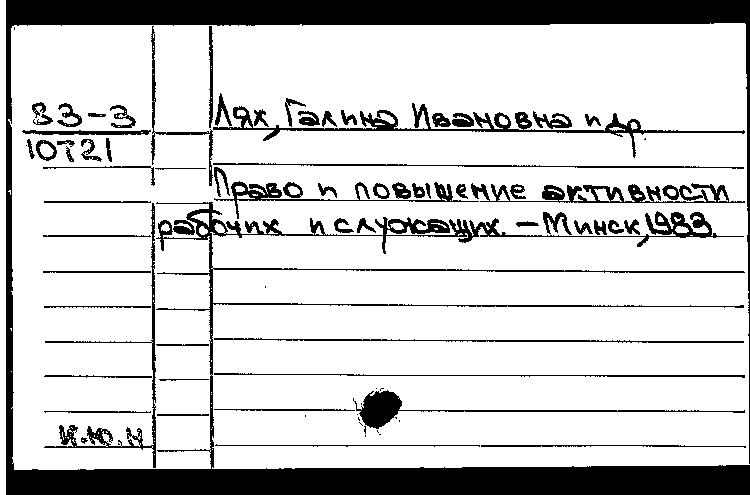 83-3
10721
Лях, Галина Ивановна и др
Право и повышение активности
рабочих и служащих. - Минск, 1983.
И.Ю.Н